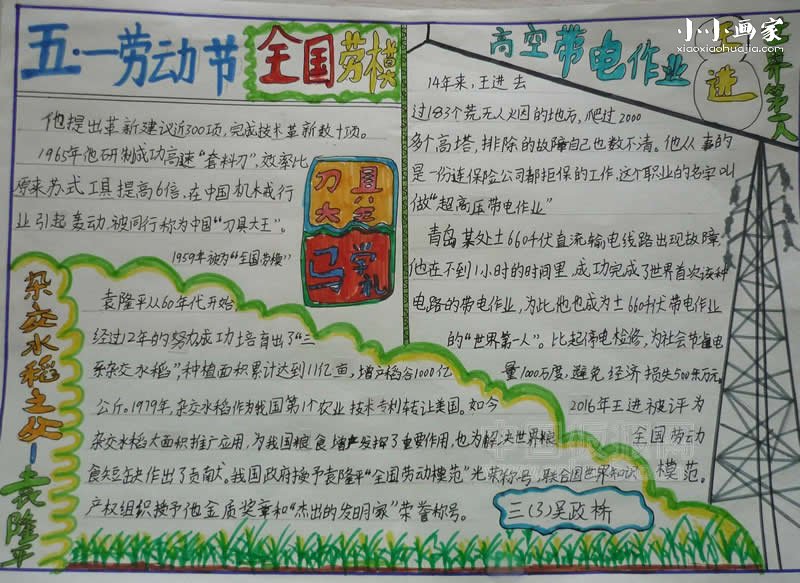 五·一劳动节
全国劳模
他提出革新建议近300项,完成技术革新数十项。
1965年他研制成功高速“套料刀”,效率比
原来苏式工具提高6倍,在中国机械行
业引起轰动,被同行称为中国“刀具大王”。
1959年被为“全国劳模”
刀具
大王
马学礼
杂交水稻之父-袁隆平
袁隆平从60年代开始,
经过12年的努力成功培育出了“三
系杂交水稻”,种植面积累计达到11亿亩,增产稻谷1000亿
公斤。1979年,杂交水稻作为我国第1个农业技术专利转让美国。如今
杂交水稻大面积推广应用,为我国粮食增产发挥了重要作用,也为解决世界粮
食短缺作出了贡献。我国政府授予袁隆平“全国劳动模范”光荣称号,联合国世界知识
产权组织授予他金质奖章和“杰出的发明家”荣誉称号。
高空带电作业
世界第一人
王进
14年来,王进去
过183个荒无人火因的地方,爬过2000
多个高塔,排除的故障自己也数不清。他从事的
是一份连保险公司都拒保的工作,这个职业的名字叫
做“超高压带电作业”
青岛某处±660千伏直流输电线路出现故障,
他在不到1小时的时间里,成功完成了世界首次该种
电路的带电作业,为此,他也成为±660千伏带电作业
的“世界第一人”。比起停电检修,为社会节省电
量1000万度,避免经济损失500余万元。
2016年王进被评为
全国劳动
模范。
三(3)吴政桥
小小画家
xiaoxiaohuajia.com